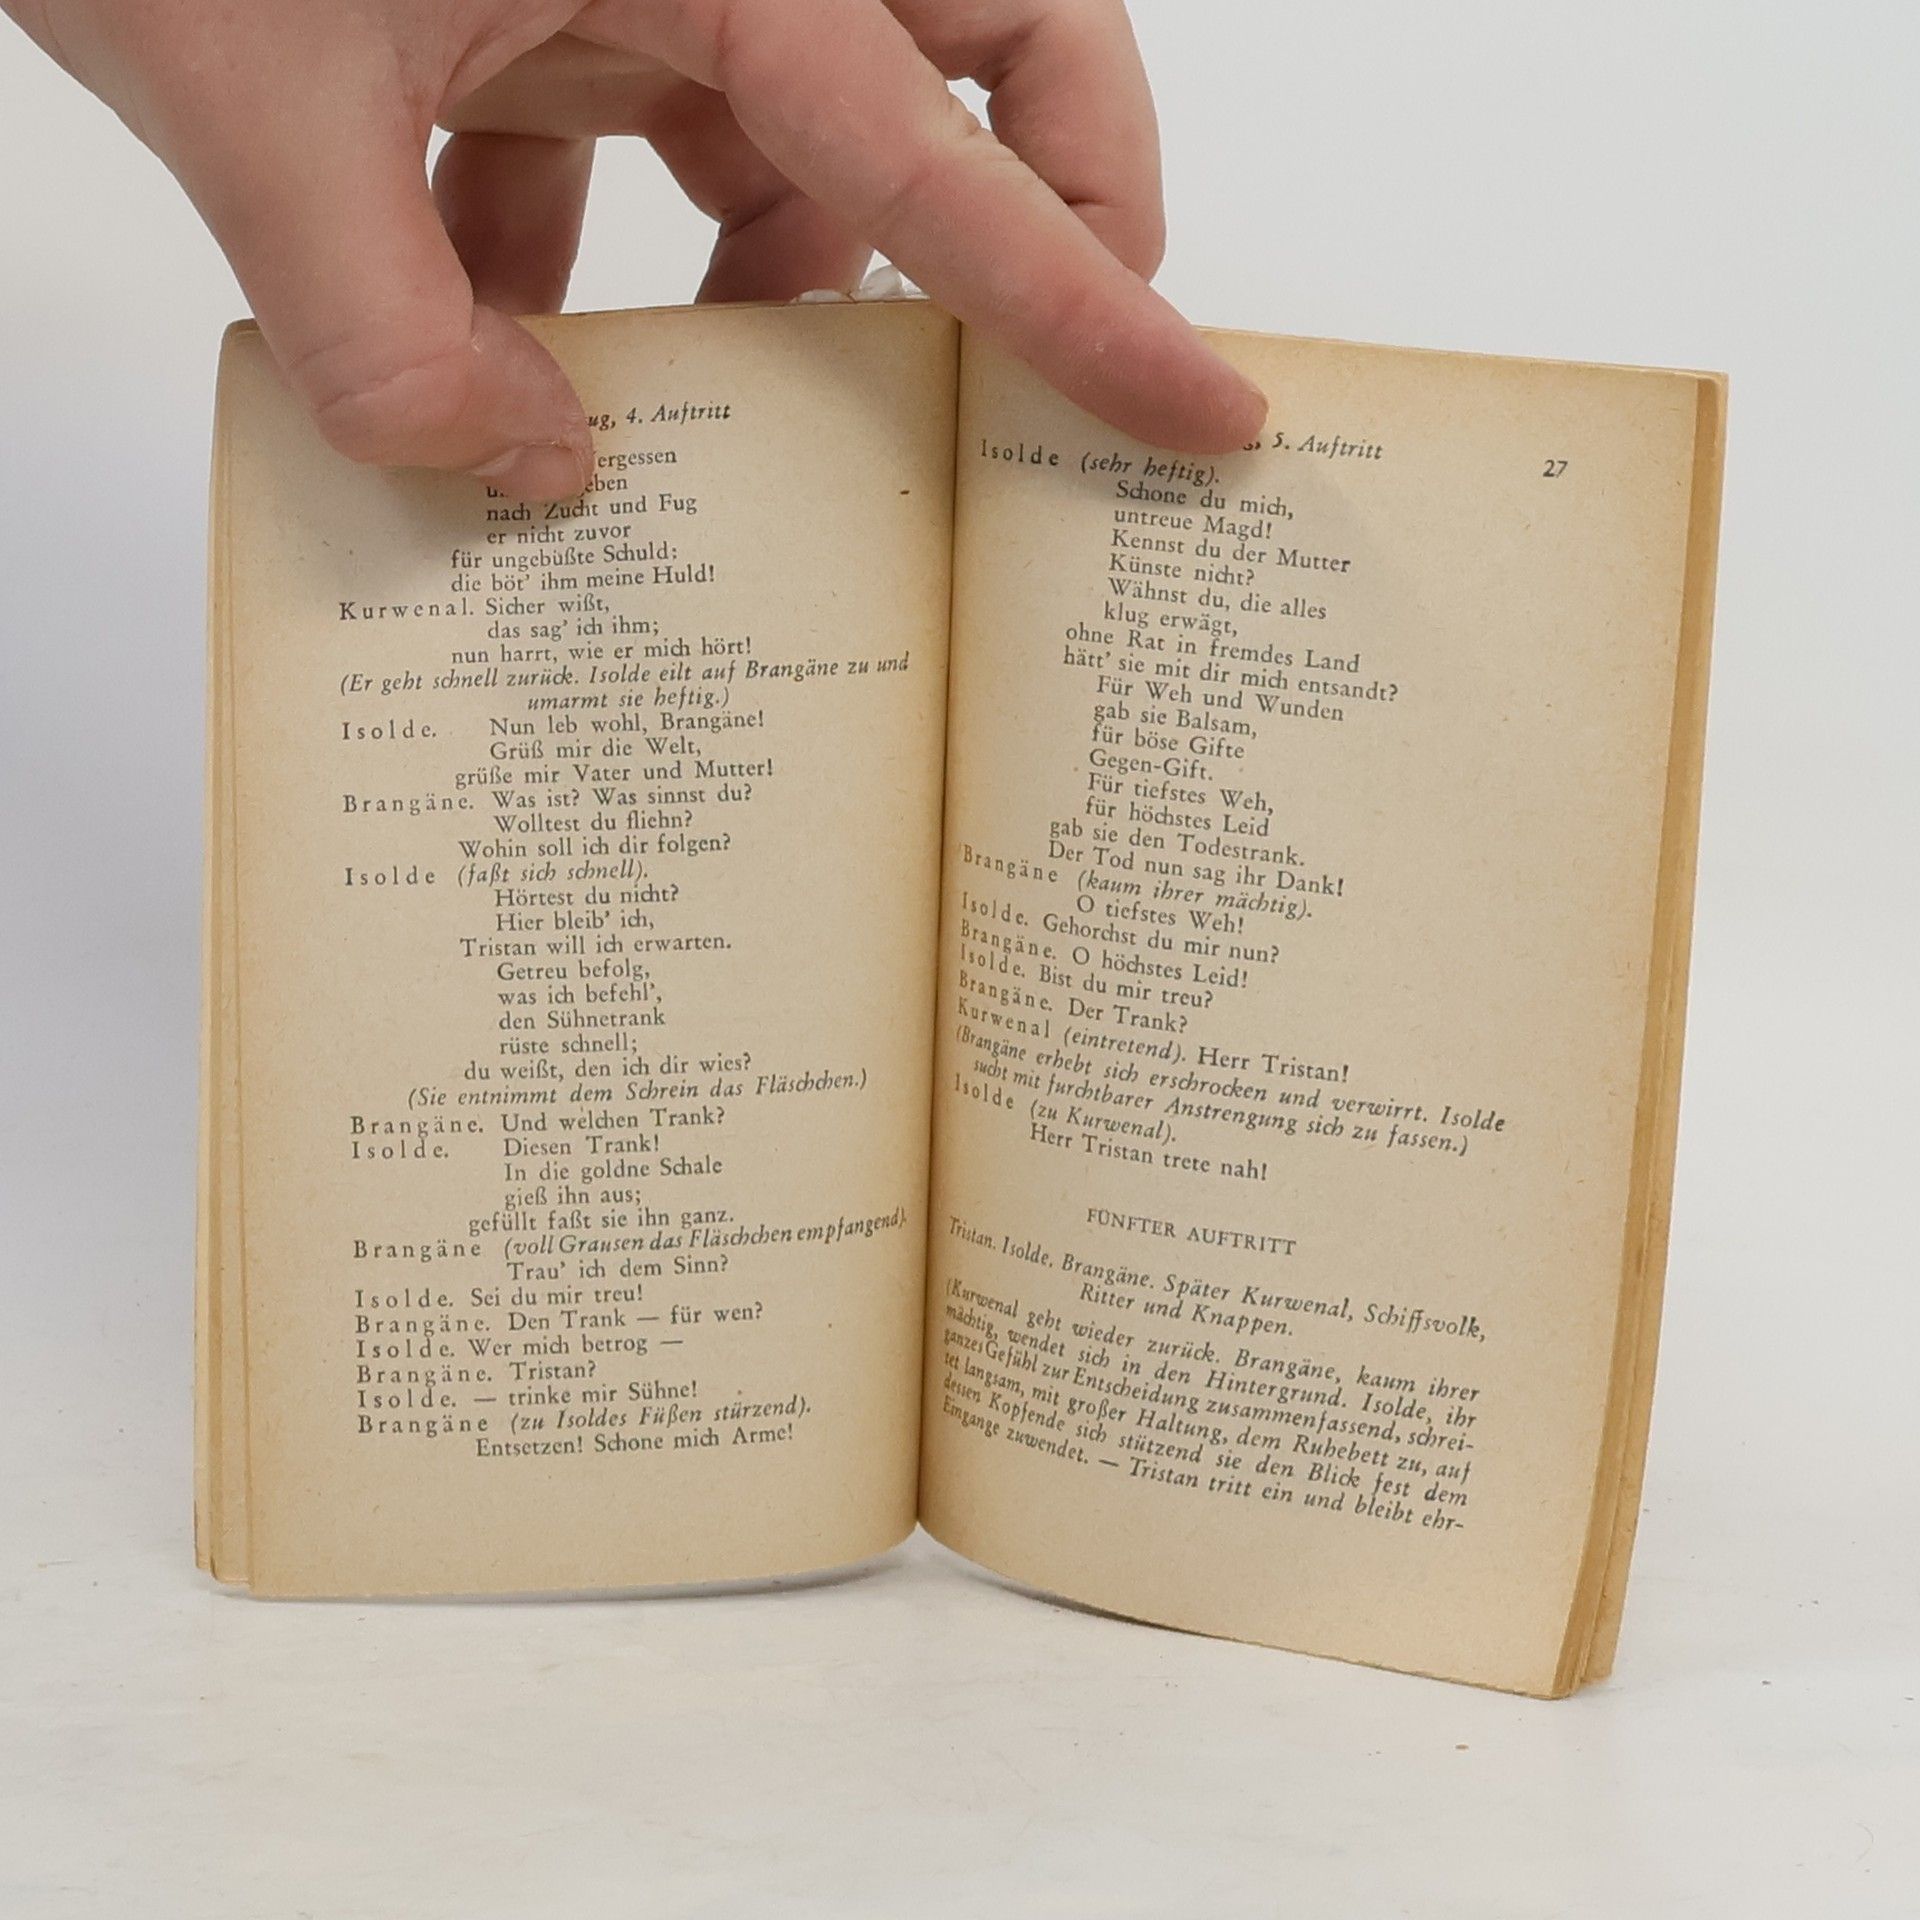 4. Auftritt
nach Zucht und Fug
er nicht zuvor
für ungebüßte Schuld;
die böt' ihm meine Huld!
Kurwenal. Sicher wißt,
das sag' ich ihm;
nun harrt, wie er mich hört!
(Er geht schnell zurück. Isolde eilt auf Brangäne zu und
umarmt sie heftig.)
Isolde. Nun leb wohl, Brangäne!
Grüß mir die Welt,
grüße mir Vater und Mutter!
Brangäne. Was ist? Was sinnst du?
Wolltest du fliehn?
Wohin soll ich dir folgen?
Isolde (faßt sich schnell).
Hörtest du nicht?
Hier bleib' ich,
Tristan will ich erwarten.
Getreu befolg,
was ich befehl',
den Sühnetrank
rüste schnell;
du weißt, den ich dir wies?
(Sie entnimmt dem Schrein das Fläschchen.)
Brangäne. Und welchen Trank?
Isolde. Diesen Trank!
In die goldne Schale
gieß ihn aus;
gefüllt faßt sie ihn ganz.
Brangäne (voll Grausen das Fläschchen empfangend).
Trau' ich dem Sinn?
Isolde. Sei du mir treu!
Brangäne. Den Trank — für wen?
Isolde. Wer mich betrog —
Brangäne. Tristan?
Isolde. — trinke mir Sühne!
Brangäne (zu Isoldes Füßen stürzend).
Entsetzen! Schone mich Arme!
5. Auftritt 27
Isolde (sehr heftig).
Schone du mich,
untreue Magd!
Kennst du der Mutter
Künste nicht?
Wähnst du, die alles
klug erwägt,
ohne Rat in fremdes Land
hätt' sie mit dir mich entsandt?
Für Weh und Wunden
gab sie Balsam,
für böse Gifte
Gegen-Gift.
Für tiefstes Weh,
für höchstes Leid
gab sie den Todestrank.
Der Tod nun sag ihr Dank!
Brangäne (kaum ihrer mächtig).
O tiefstes Weh!
Isolde. Gehorchst du mir nun?
Brangäne. O höchstes Leid!
Isolde. Bist du mir treu?
Brangäne. Der Trank?
Kurwenal (eintretend). Herr Tristan!
(Brangäne erhebt sich erschrocken und verwirrt. Isolde
sucht mit furchtbarer Anstrengung sich zu fassen.)
Isolde (zu Kurwenal).
Herr Tristan trete nah!
FÜNFTER AUFTRITT
Tristan. Isolde. Brangäne. Später Kurwenal, Schiffsvolk,
Ritter und Knappen.
(Kurwenal geht wieder zurück. Brangäne, kaum ihrer
mächtig, wendet sich in den Hintergrund. Isolde, ihr
ganzes Gefühl zur Entscheidung zusammenfassend, schrei-
tet langsam, mit großer Haltung, dem Ruhebett zu, auf
dessen Kopfende sich stützend sie den Blick fest dem
Eingange zuwendet. — Tristan tritt ein und bleibt ehr-